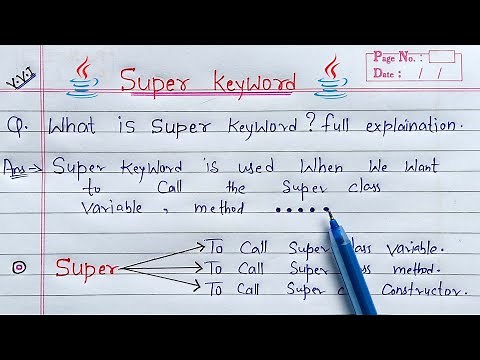 V.V.I
Super Keyword
Page No. :
Date : / /
Q. What is Super Keyword? full explaination.
Ans → Super Keyword is used When We Want
to Call the Super class
Variable, method •••••
Super
To Call Super class Variable.
To Call Super class method.
To Call Super Constructor.